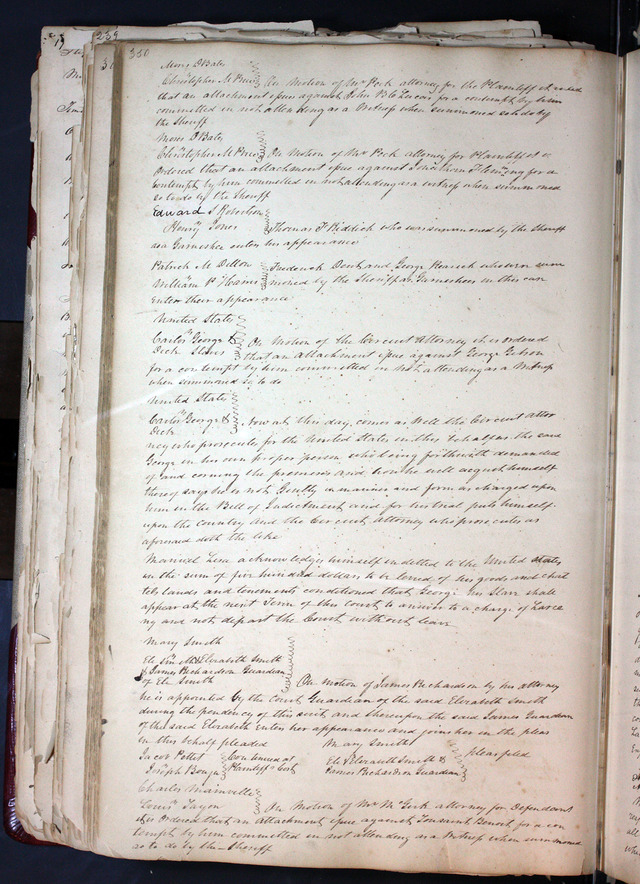 239
350
Moses D Bates
Christopher M Price On Motion of Mr Peck attorney for the Plaintiff it is ordered
that an attachment issue against John B C Lucas for a contempt by him
committed in not attending as a Witness when summoned so to do by
the Sheriff
Moses D Bates
Christopher M Price On Motion of Mr Peck attorney for Plaintiff it is
ordered that an attachment issue against Fleming for a
Contempt by him committed in not attending as a Witness when summoned
so to do by the Sheriff
Edward S Roberton
Henry Jones Thomas F Riddick who was summoned by the Sheriff
as a Garnishee enters his appearance
Patrick M Dillon Frederick Dent and George who were sum
William P moned by the Sheriff as Garnishees in this case
Enter their appearance
United States
Carlos George &
Dick Slaves On Motion of the Circuit Attorney it is ordered
that an attachment issue against George
for a contempt by him committed in not attending as a Witness
when summoned so to do
United States
Carlos George &
Dick Now at this day comes as Well the Circuit attor
ney who prosecutes for the United States in this behalf as the said
George in his own proper person who being forthwith demanded
of and concerning the premises and how he will acquit himself
thereof says he is not Guilty in manner and form as charged upon
him in the Bill of Indictment and for his trial puts himself
upon the Country and the Circuit attorney who prosecutes as
aforesaid doth the like
Manuel Lisa acknowledges himself indebted to the United States
in the sum of five hundred dollars to be levied of his goods and chat
tels lands and tenements conditioned that George his Slave shall
appear at the next Term of this Court to answer to a charge of Larce
ny and not depart the Court without leave
Mary Smith
Eli Smith & Elizabeth Smith
& James Richardson Guardian
of Eli Smith On Motion of James Richardson by his attorney
he is appointed by the Court Guardian of the said Elizabeth Smith
during the pendency of this suit and thereupon the said James Guardian
of the said Elizabeth Enters her appearance and joins her in the pleas
in this behalf pleaded
Mary Smith
Eli & Elizabeth Smith &
James Richardson Guardian pleas filed
Jacob Pettit Continued at
Joseph Bouju Plaintiffs Cost
Charles Mainville
Louis Tayon On Motion of Mr McGirk attorney for Defendant
it is Ordered that an attachment issue against Toussaint Benoit for a con
tempt by him committed in not attending as a Witness when summoned
so to do by the Sheriff